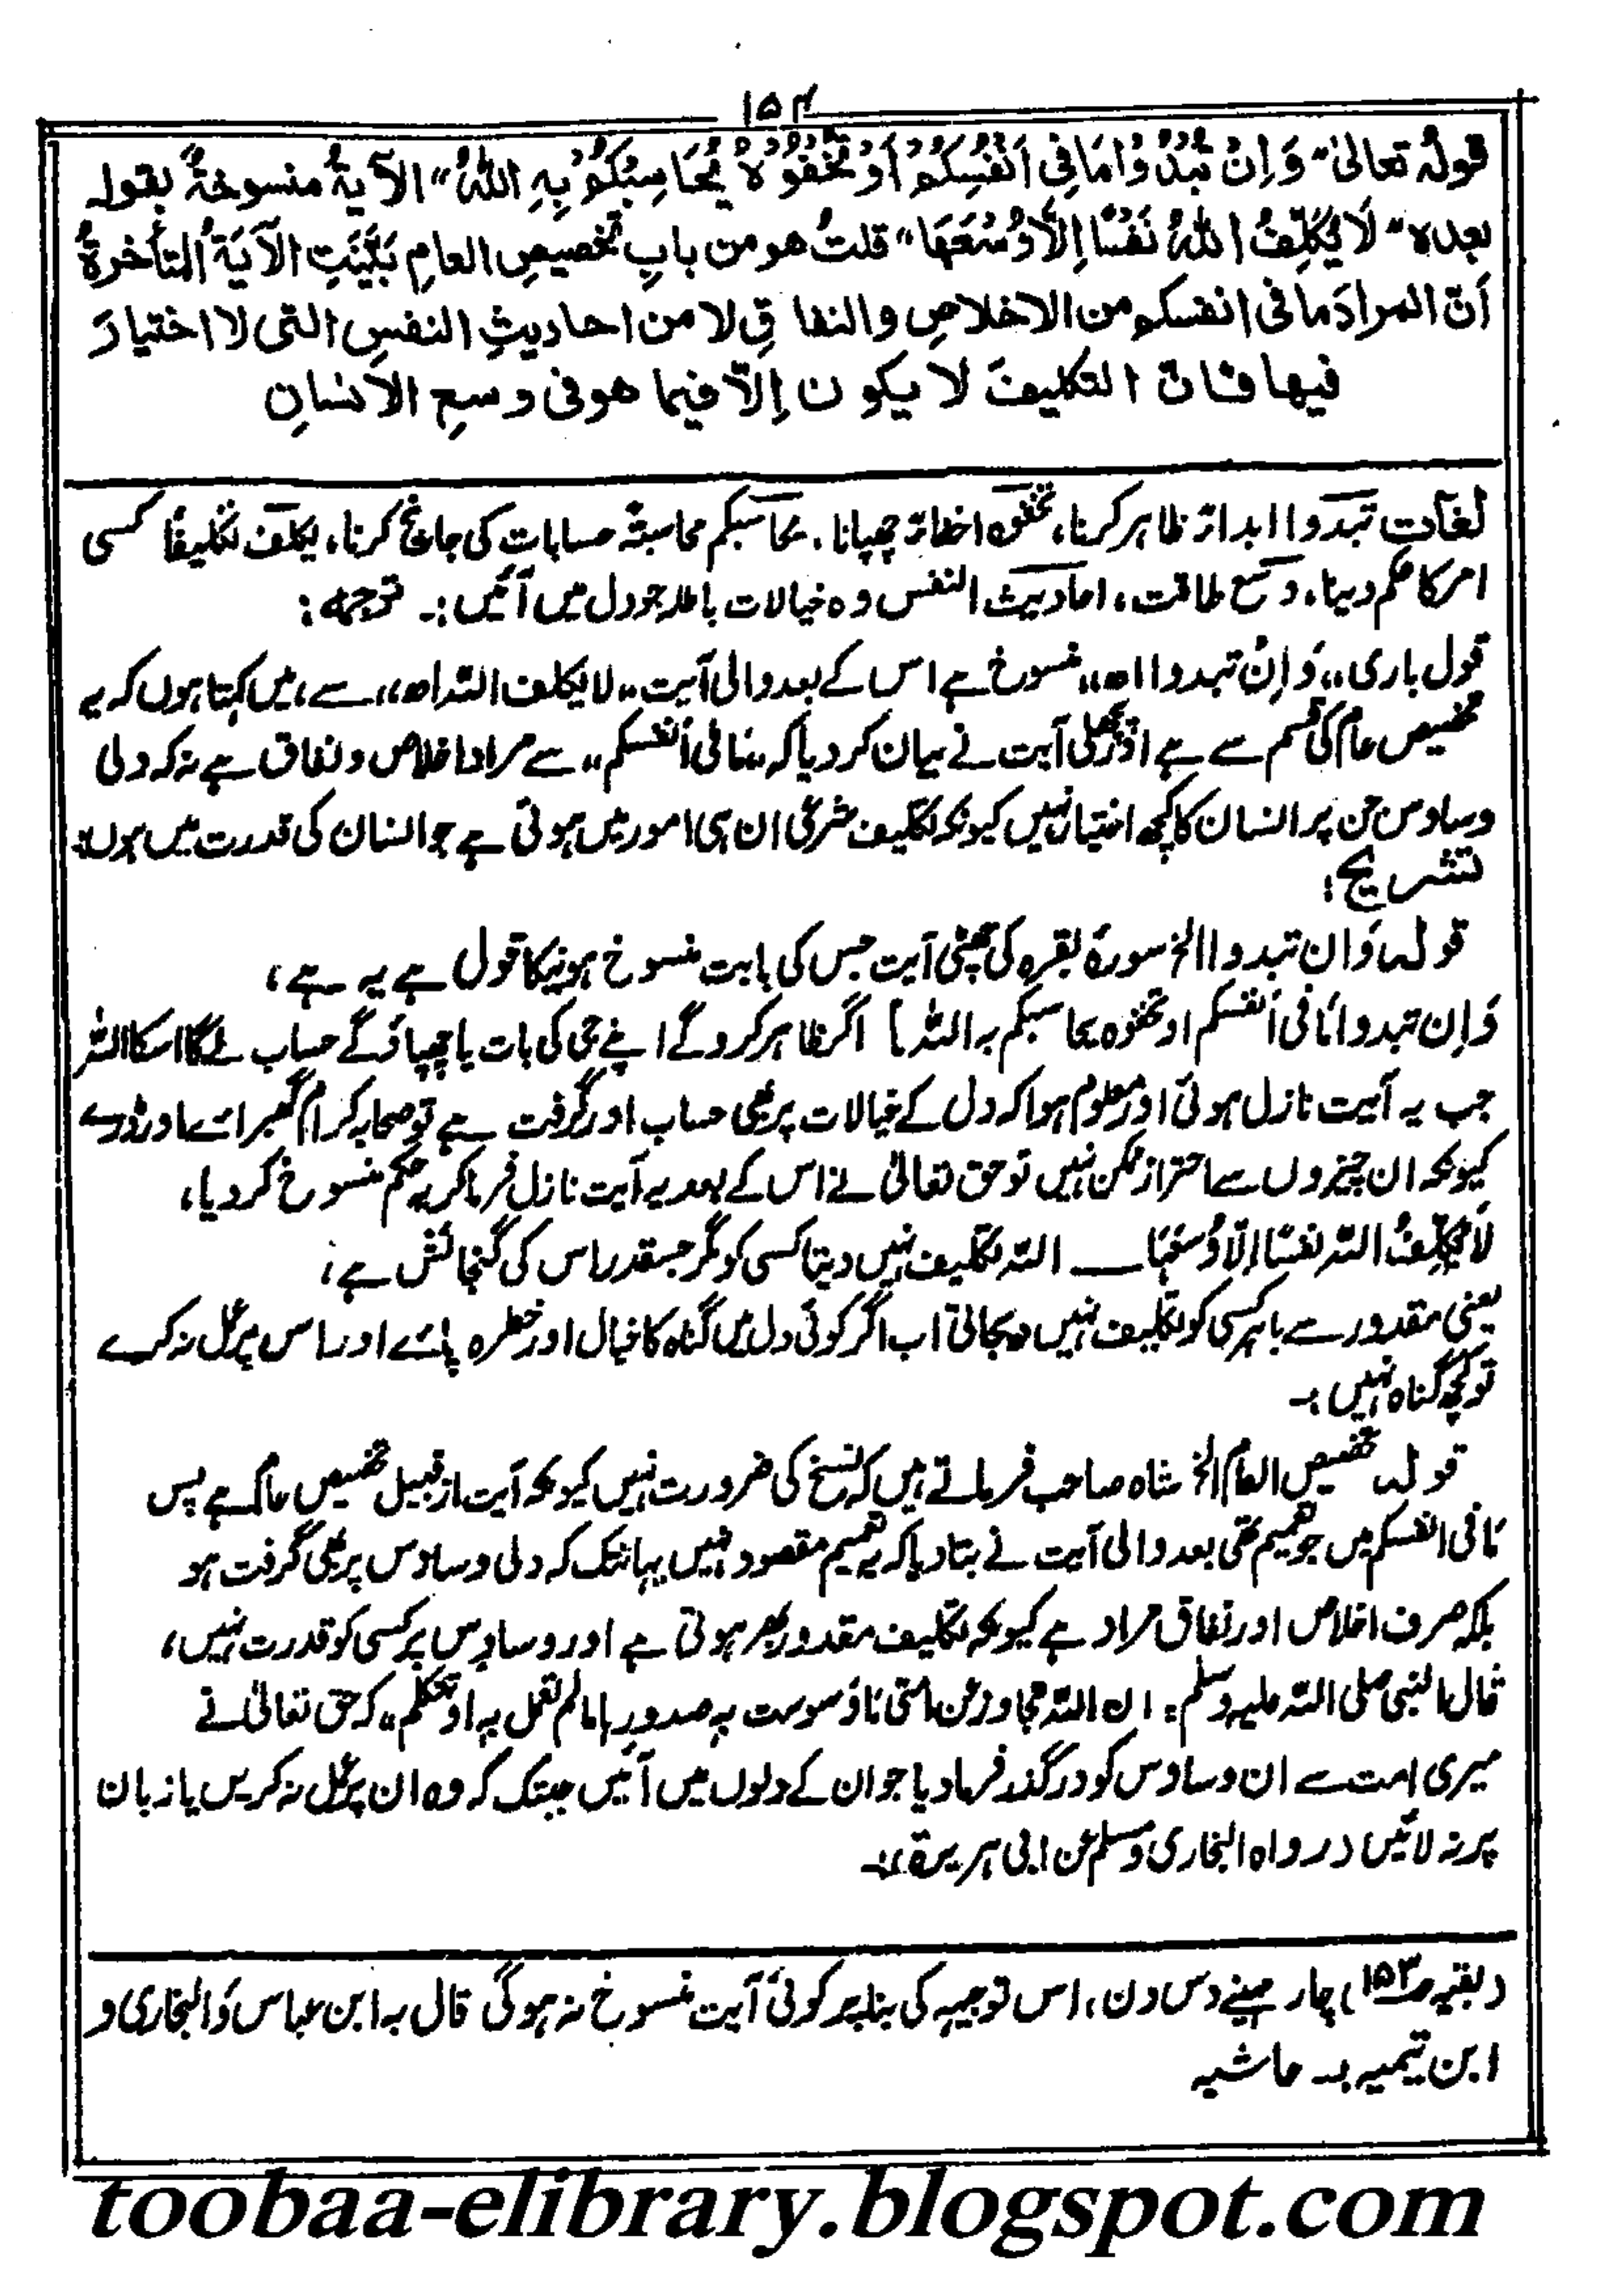 ۱۵۴
قولہ تعالیٰ "وَاِنْ تُبْدُوْا مَا فِی اَنْفُسِکُمْ اَوْ تُخْفُوْہُ یُحَاسِبْکُمْ بِہِ اللہُ" الآیۃُ منسوخۃٌ بقولہ
بعدہ "لَا یُکَلِّفُ اللہُ نَفْسًا اِلَّا وُسْعَہَا" قلتُ ھو من بابِ تخصیصِ العامِ بَیَّنَتِ الآیَۃُ المتأخرۃُ
اَنّ المرادَ ما فی انفسکم من الاخلاصِ والنفاقِ لا من احادیثِ النفسِ التی لا اختیارَ
فیھا فانّ التکلیفَ لا یکون اِلّا فیما ھو فی وسعِ الانسانِ
لغات تبدوا ابداءً ظاہر کرنا، تخفوہ اخفاءً چھپانا، یحاسبکم محاسبۃً حسابات کی جانچ کرنا، یکلف تکلیفًا کسی
امر کا حکم دینا، وسع طاقت، احادیث النفس وہ خیالات باطلہ جو دل میں آئیں :۔ ترجمہ :
قول باری ،،وَاِنْ تبدوا اھ،، منسوخ ہے اس کے بعد والی آیت ،،لا یکلف اللہ اھ،، سے، میں کہتا ہوں کہ یہ
تخصیص عام کی قسم سے ہے اور پچھلی آیت نے بیان کر دیا کہ ،،مَا فی اَنفسکم،، سے مراد اخلاص و نفاق ہے نہ کہ دلی
وساوس جن پر انسان کا کچھ اختیار نہیں کیونکہ تکلیف شرعی ان ہی امور میں ہوتی ہے جو انسان کی قدرت میں ہوں:
تشریح :
قولہ وَان تبدوا الخ سورۂ بقرہ کی چھٹی آیت جس کی بابت منسوخ ہونیکا قول ہے یہ ہے،
وَاِن تبدوا مَا فی اَنفسکم او تخفوہ یحاسبکم بہ اللہ] اگر ظاہر کرو گے اپنے جی کی بات یا چھپاؤ گے حساب لے گا اسکا اللہ
جب یہ آیت نازل ہوئی اور معلوم ہوا کہ دل کے خیالات پر بھی حساب اور گرفت ہے تو صحابہ کرام گھبرائے اور ڈرے
کیونکہ ان چیزوں سے احتراز ممکن نہیں تو حق تعالیٰ نے اس کے بعد یہ آیت نازل فرما کر یہ حکم منسوخ کر دیا،
لَا یُکَلِّفُ اللہ نفسًا اِلّا وُسْعَہَا ــــ اللہ تکلیف نہیں دیتا کسی کو مگر جسقدر اس کی گنجائش ہے،
یعنی مقدور سے باہر کسی کو تکلیف نہیں دیجاتی اب اگر کوئی دل میں گناہ کا خیال اور خطرہ پائے اور اس پر عمل نہ کرے
تو کچھ گناہ نہیں :۔
قولہ تخصیص العام الخ شاہ صاحب فرماتے ہیں کہ نسخ کی ضرورت نہیں کیونکہ آیت از قبیل تخصیص عام ہے پس
مَا فی انفسکم میں جو تعمیم تھی بعد والی آیت نے بتا دیا کہ یہ تعمیم مقصود نہیں یہانتک کہ دلی وساوس پر بھی گرفت ہو
بلکہ صرف اخلاص اور نفاق مراد ہے کیونکہ تکلیف مقدور بھر ہوتی ہے اور وساوس پر کسی کو قدرت نہیں،
قال النبی صلی اللہ علیہ وسلم : ان اللہ تجاوز عن امتی مَا وَسوست بہ صدورہا ما لم تعمل بہ او تتکلم،، کہ حق تعالیٰ نے
میری امت سے ان وساوس کو درگذر فرما دیا جو ان کے دلوں میں آئیں جبتک کہ وہ ان پر عمل نہ کریں یا زبان
پر نہ لائیں (رواہ البخاری ومسلم عن ابی ہریرۃ :۔
(بقیہ ص۱۵۳) چار مہینے دس دن، اس توجیہہ کی بنا پر کوئی آیت منسوخ نہ ہوگی قال بہ ابن عباس وَالبخاری و
ابن تیمیہ :۔ حاشیہ
toobaa-elibrary.blogspot.com